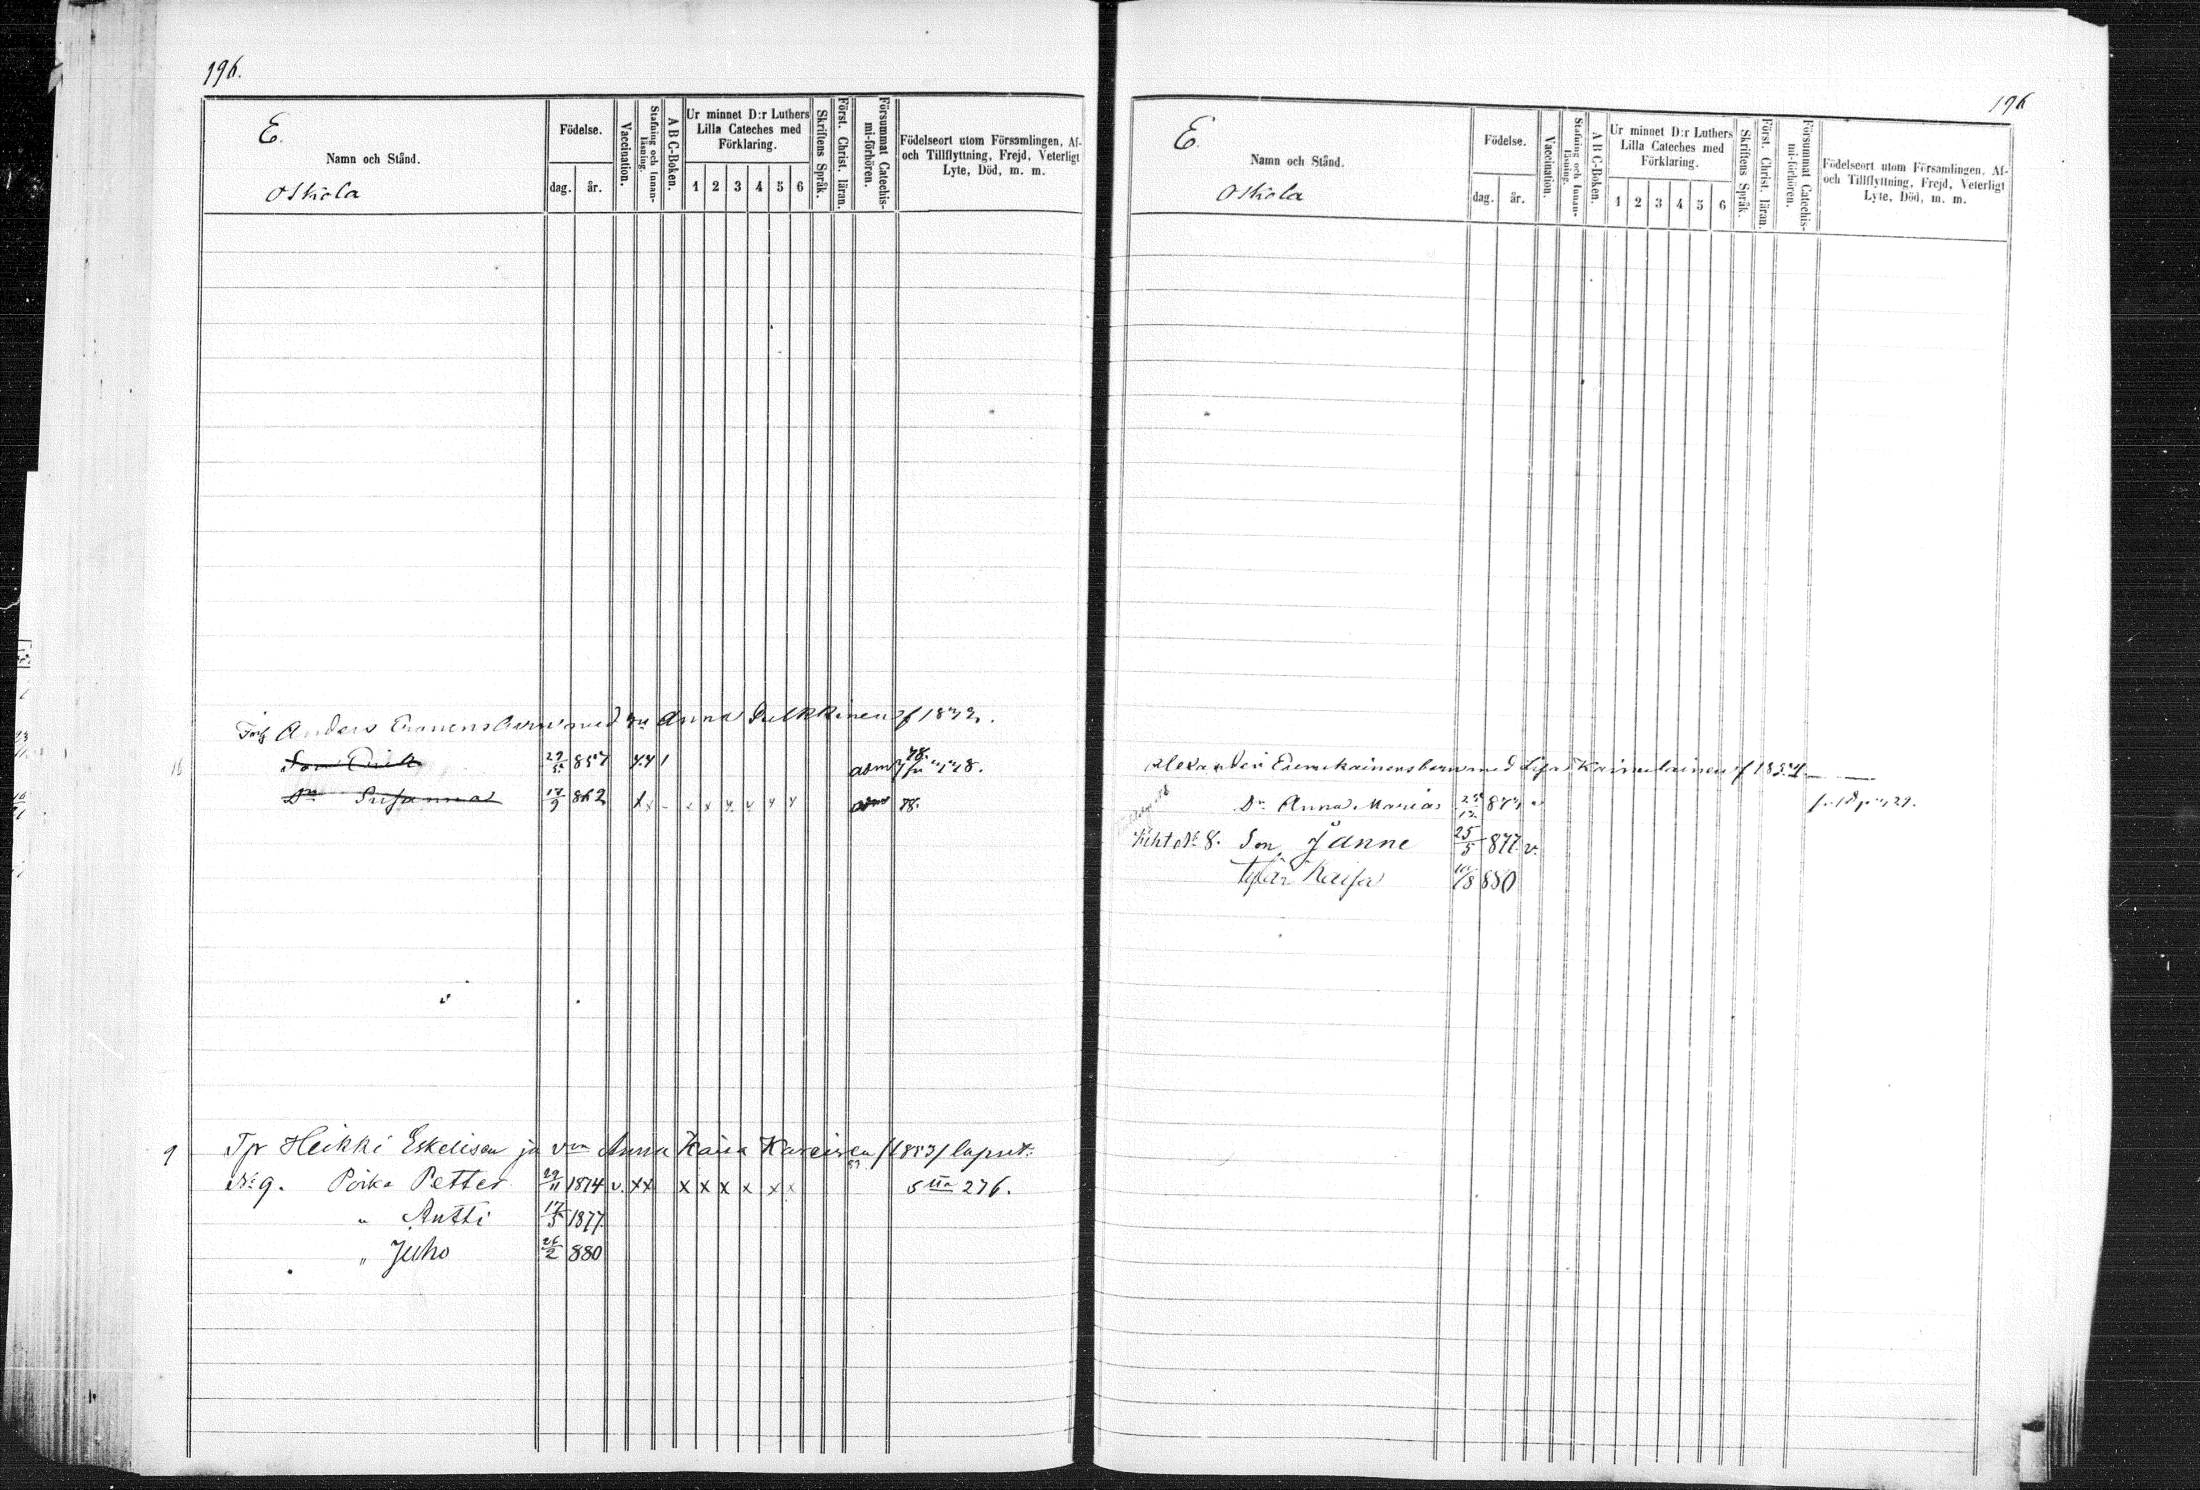 196.
E.
Namn och Stånd.
Oskola
Födelse.
dag. år.
Vaccination.
Stafning och Innan-
läsning.
A B C-Boken.
Ur minnet D:r Luthers
Lilla Cateches med
Förklaring.
1 2 3 4 5 6
Skriftens Språk.
Först. Christ. läran.
Försummat Catechis-
mi-förhören.
Födelseort utom Församlingen, Af-
och Tillflyttning, Frejd, Veterligt
Lyte, Död, m. m.
Anders Eronens barn med Anna Pulkkinen
Son Erik 29/5 857 78.
Dr Susanna 17/9 862 x x 78.
9 Tpr Heikki Eskelisen ja Vmn Anna Kaisa Kareisen /1853/ lapset.
No 9. Poika Petter 29/11 1874 v. x x x x x x x x S 276.
" Antti 17/5 1877
" Juho 26/2 880
196
E.
Namn och Stånd.
Oskola
Födelse.
dag. år.
Vaccination.
Stafning och Innan-
läsning.
A B C-Boken.
Ur minnet D:r Luthers
Lilla Cateches med
Förklaring.
1 2 3 4 5 6
Skriftens Språk.
Först. Christ. läran.
Försummat Catechis-
mi-förhören.
Födelseort utom Församlingen, Af-
och Tillflyttning, Frejd, Veterligt
Lyte, Död, m. m.
Alexander barn med
Dr Anna Maria
No 8. Son Janne 25/5 877 v.
Tytär Kaisa 880